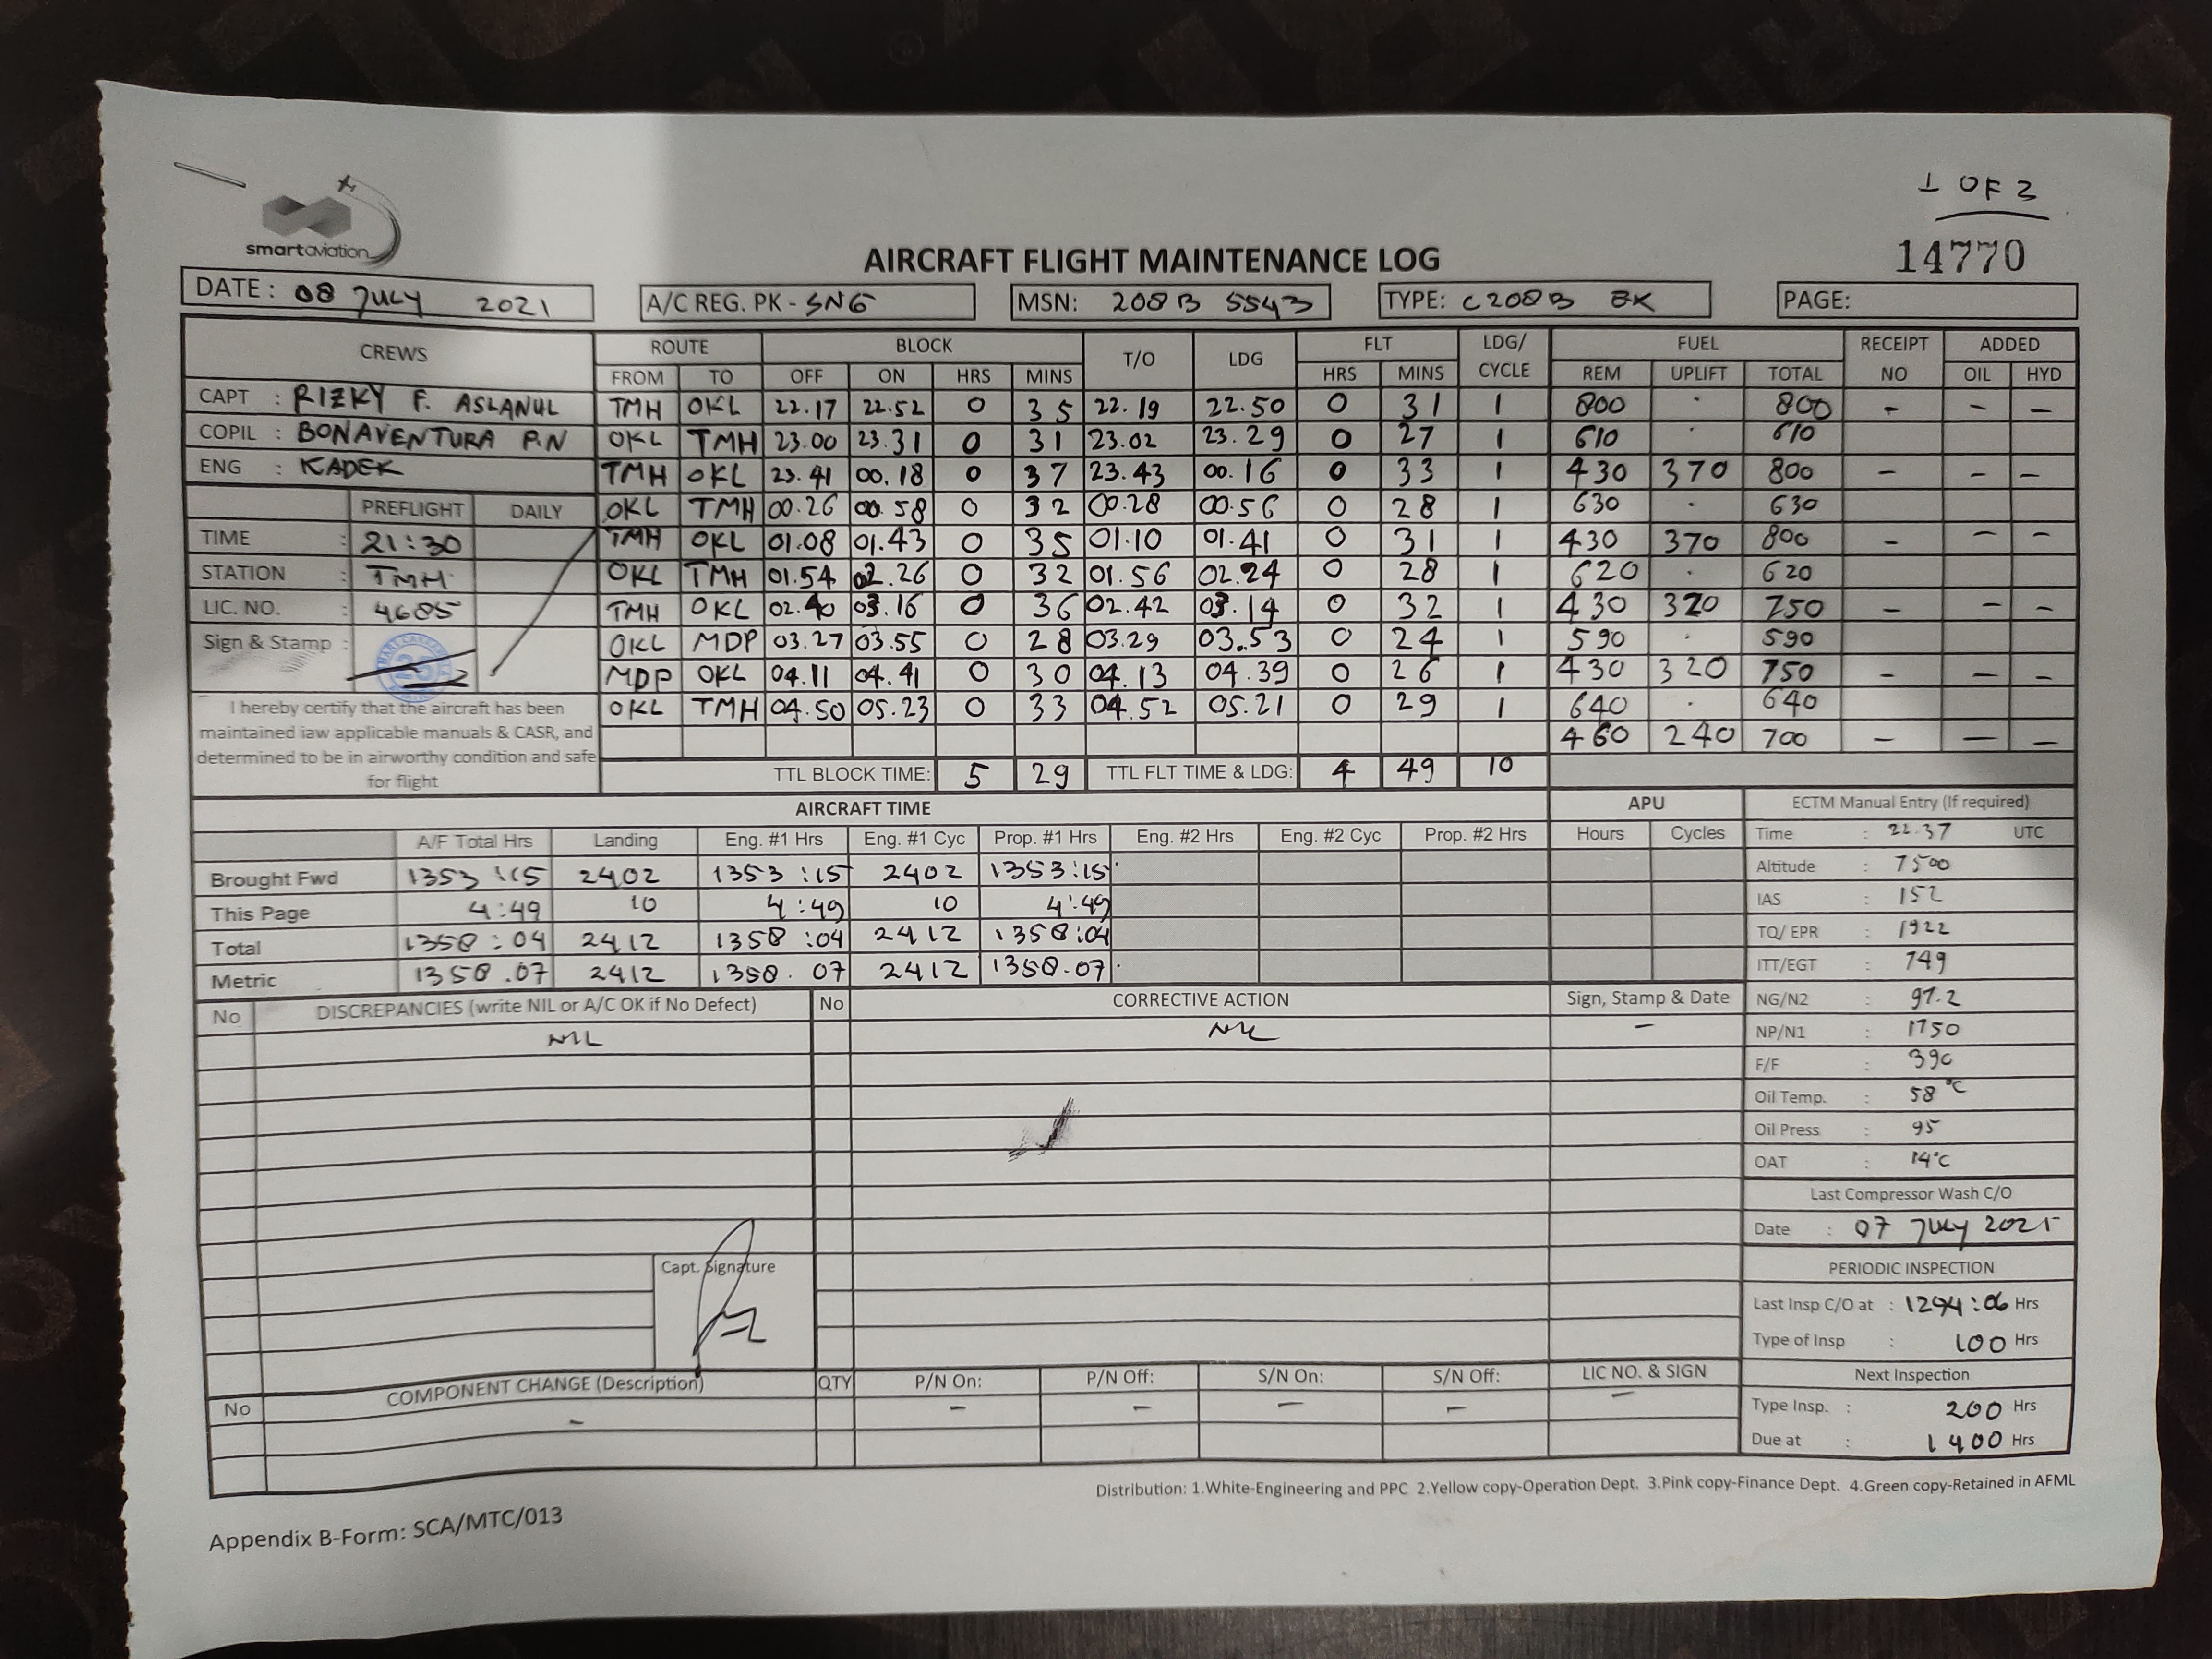 1 OF 3
smartaviation
14770
AIRCRAFT FLIGHT MAINTENANCE LOG
DATE: 08 JULY 2021 A/C REG. PK - SNG MSN: 208B 5543 TYPE: C208B EX PAGE:
CREWS ROUTE BLOCK T/O LDG FLT LDG/ CYCLE FUEL RECEIPT NO ADDED
FROM TO OFF ON HRS MINS HRS MINS REM UPLIFT TOTAL OIL HYD
CAPT : RIZKY F. ASLANUL TMH OKL 22.17 22.52 0 35 22.19 22.50 0 31 1 800 . 800 - - -
COPIL : BONAVENTURA P.N OKL TMH 23.00 23.31 0 31 23.02 23.29 0 27 1 610 . 610
ENG : KADEK TMH OKL 23.41 00.18 0 37 23.43 00.16 0 33 1 430 370 800 - - -
PREFLIGHT DAILY OKL TMH 00.26 00.58 0 32 00.28 00.56 0 28 1 630 . 630
TIME : 21:30 TMH OKL 01.08 01.43 0 35 01.10 01.41 0 31 1 430 370 800 - - -
STATION : TMH OKL TMH 01.54 02.26 0 32 01.56 02.24 0 28 1 620 . 620
LIC. NO. : 4685 TMH OKL 02.40 03.16 0 36 02.42 03.14 0 32 1 430 320 750 - - -
Sign & Stamp : OKL MDP 03.27 03.55 0 28 03.29 03.53 0 24 1 590 . 590
MDP OKL 04.11 04.41 0 30 04.13 04.39 0 26 1 430 320 750 - - -
OKL TMH 04.50 05.23 0 33 04.52 05.21 0 29 1 640 . 640
460 240 700 - - -
I hereby certify that the aircraft has been
maintained iaw applicable manuals & CASR, and
determined to be in airworthy condition and safe
for flight
TTL BLOCK TIME: 5 29 TTL FLT TIME & LDG: 4 49 10
AIRCRAFT TIME APU ECTM Manual Entry (If required)
A/F Total Hrs Landing Eng. #1 Hrs Eng. #1 Cyc Prop. #1 Hrs Eng. #2 Hrs Eng. #2 Cyc Prop. #2 Hrs Hours Cycles Time : 22.37 UTC
Brought Fwd 1353:15 2402 1353:15 2402 1353:15 Altitude : 7500
This Page 4:49 10 4:49 10 4:49 IAS : 152
Total 1358:04 2412 1358:04 2412 1358:04 TQ/ EPR : 1922
Metric 1358.07 2412 1358.07 2412 1358.07 ITT/EGT : 749
No DISCREPANCIES (write NIL or A/C OK if No Defect) No CORRECTIVE ACTION Sign, Stamp & Date NG/N2 : 97.2
NIL NIL - NP/N1 : 1750
F/F : 390
Oil Temp. : 58 °C
Oil Press : 95
OAT : 14°C
Last Compressor Wash C/O
Date : 07 JULY 2021
Capt. Signature
PERIODIC INSPECTION
Last Insp C/O at : 1294:06 Hrs
Type of Insp : 100 Hrs
No COMPONENT CHANGE (Description) QTY P/N On: P/N Off: S/N On: S/N Off: LIC NO. & SIGN Next Inspection
- - - - - - Type Insp. : 200 Hrs
Due at : 1400 Hrs
Distribution: 1.White-Engineering and PPC 2.Yellow copy-Operation Dept. 3.Pink copy-Finance Dept. 4.Green copy-Retained in AFML
Appendix B-Form: SCA/MTC/013